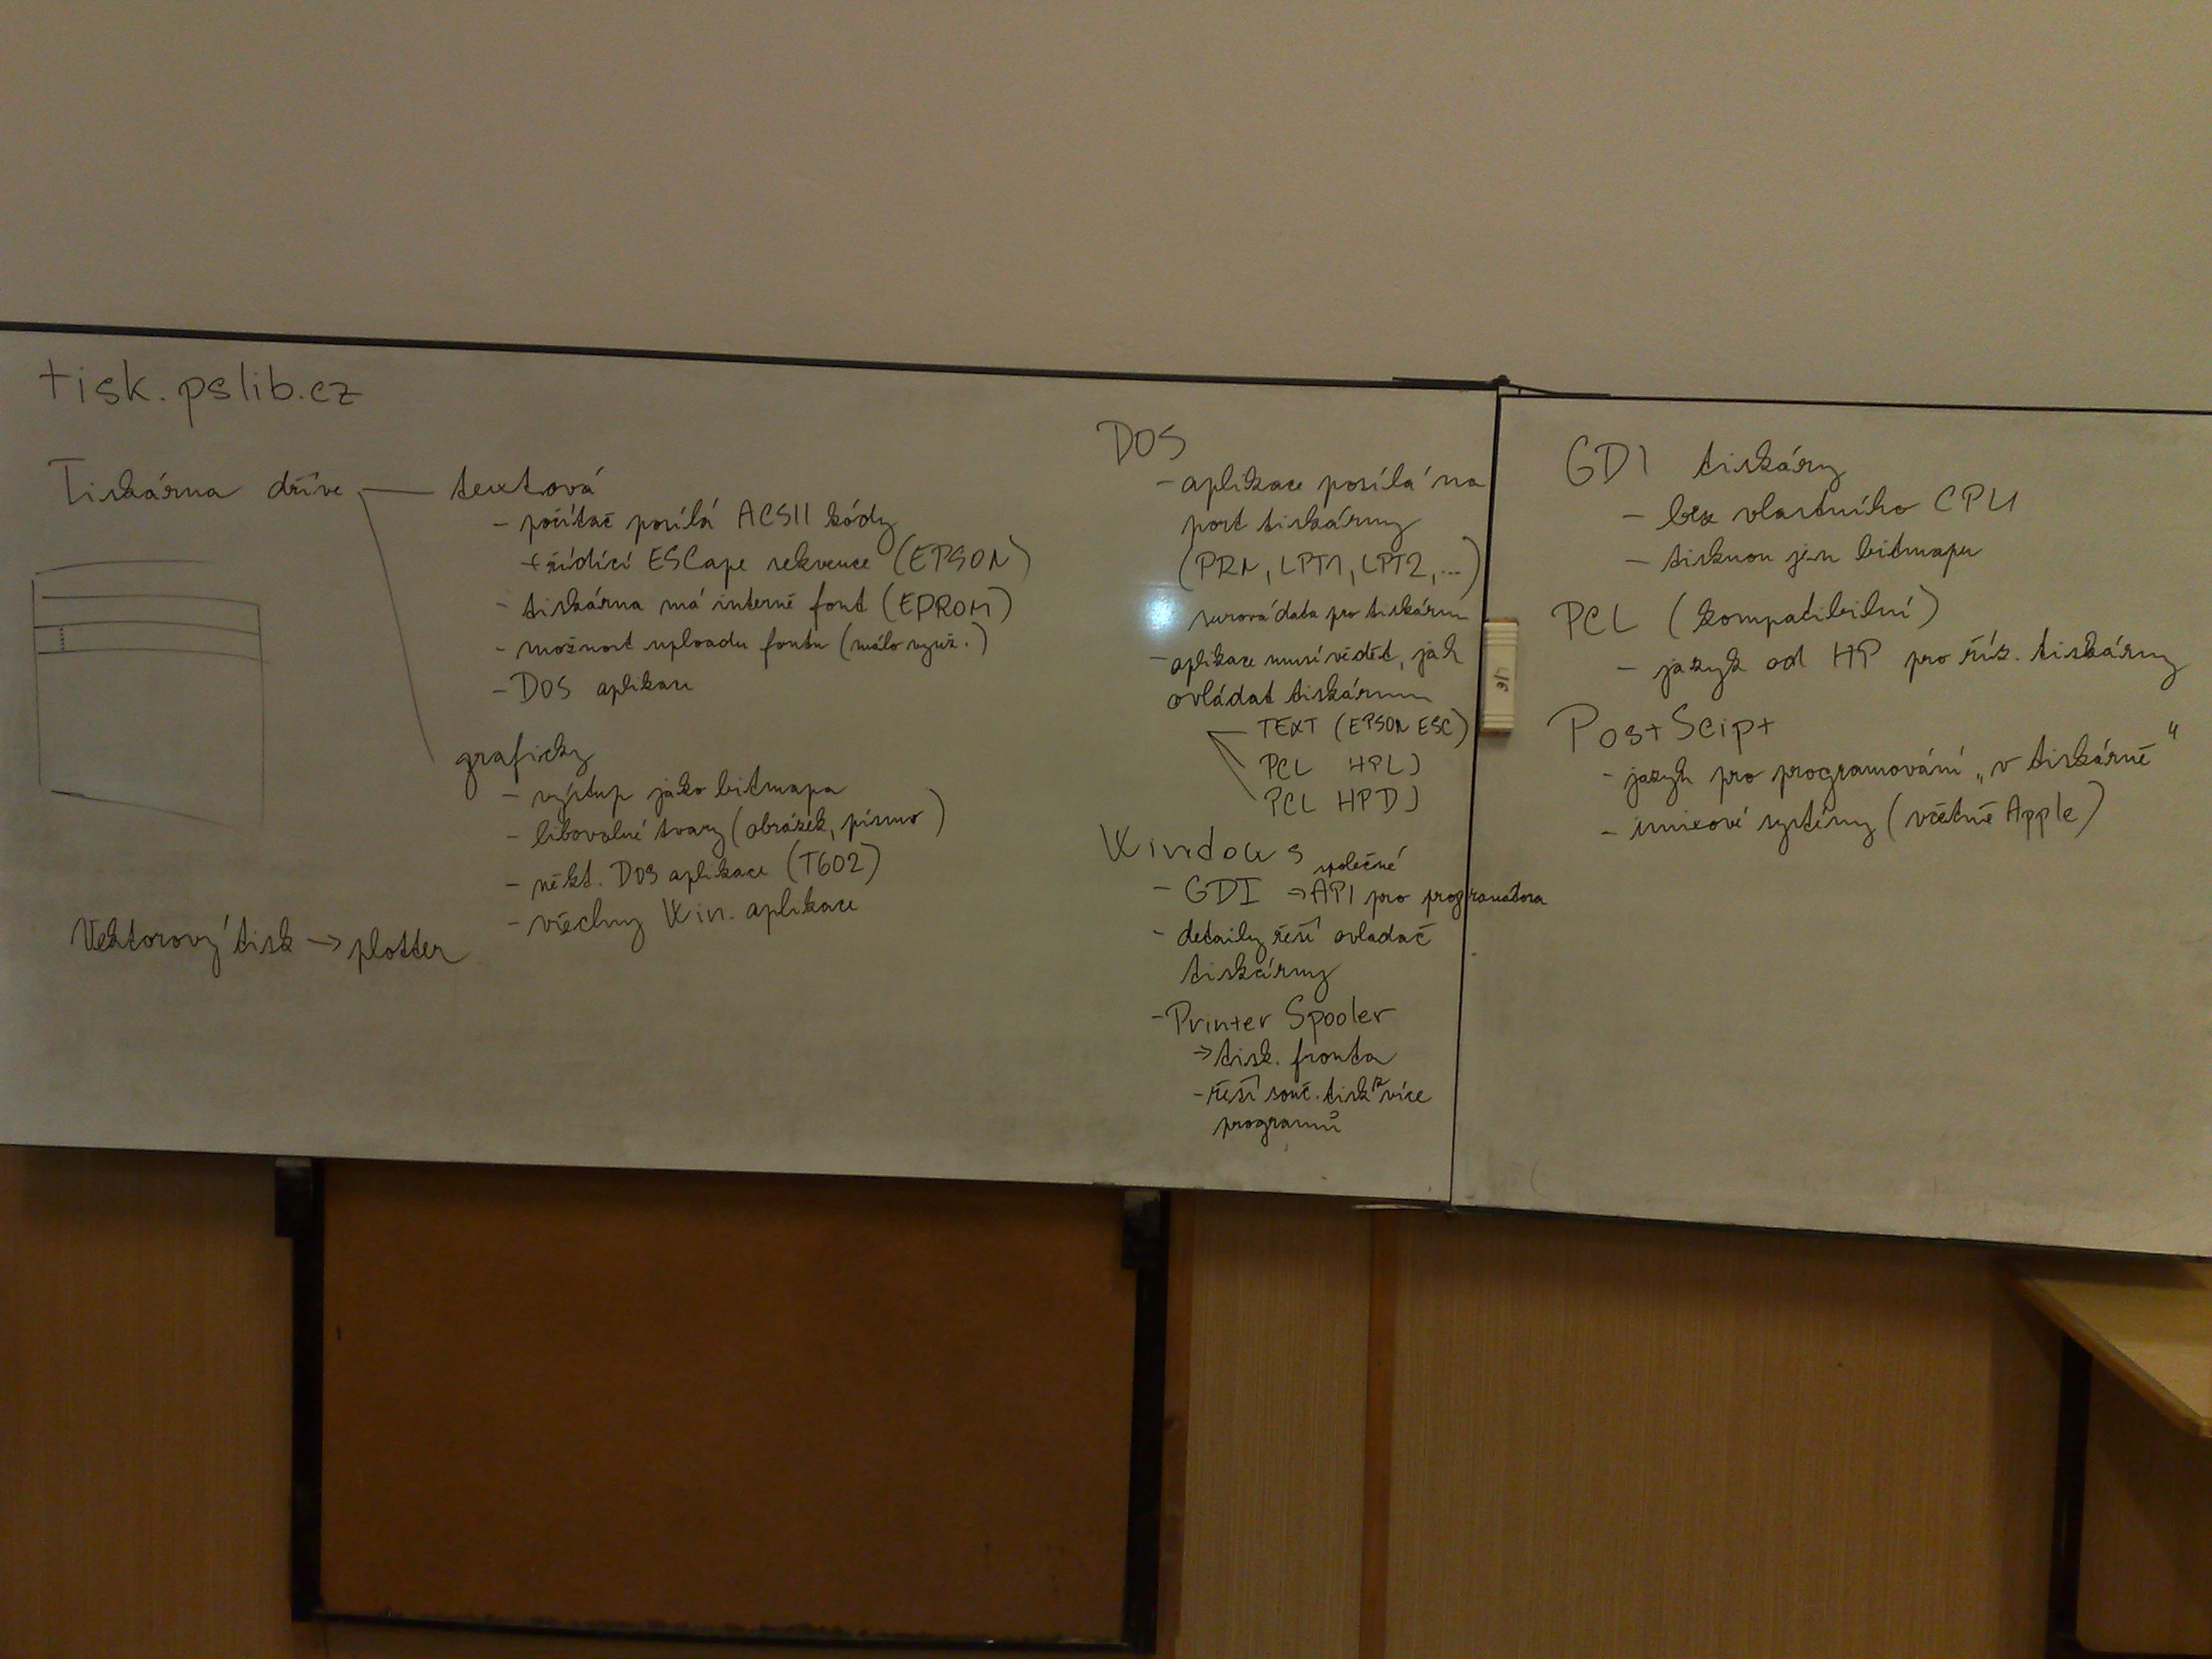 tisk.pslib.cz
Tiskárna dříve — textová
- počítač posílá ACSII kódy
+ řídící ESCape sekvence (EPSON)
- tiskárna má interně font (EPROM)
- možnost uploadu fontu (málo využ.)
- DOS aplikace
graficky
- výstup jako bitmapa
- libovolné tvary (obrázek, písmo)
- někt. DOS aplikace (T602)
- všechny Win. aplikace
Vektorový tisk → plotter
DOS
- aplikace posílá na
port tiskárny
(PRN, LPT1, LPT2, ...)
surová data pro tiskárnu
- aplikace musí vědět, jak
ovládat tiskárnu
TEXT (EPSON ESC)
PCL HPLJ
PCL HPDJ
Windows
společné
- GDI → API pro programátora
- detaily řeší ovladač
tiskárny
- Printer Spooler
→ tisk. fronta
- řeší souč. tisk z více
programů
GDI tiskárny
- bez vlastního CPU
- tisknou jen bitmapu
PCL (kompatibilní)
- jazyk od HP pro říz. tiskárny
PostScipt
- jazyk pro programování „v tiskárně"
- unixové systémy (včetně Apple)